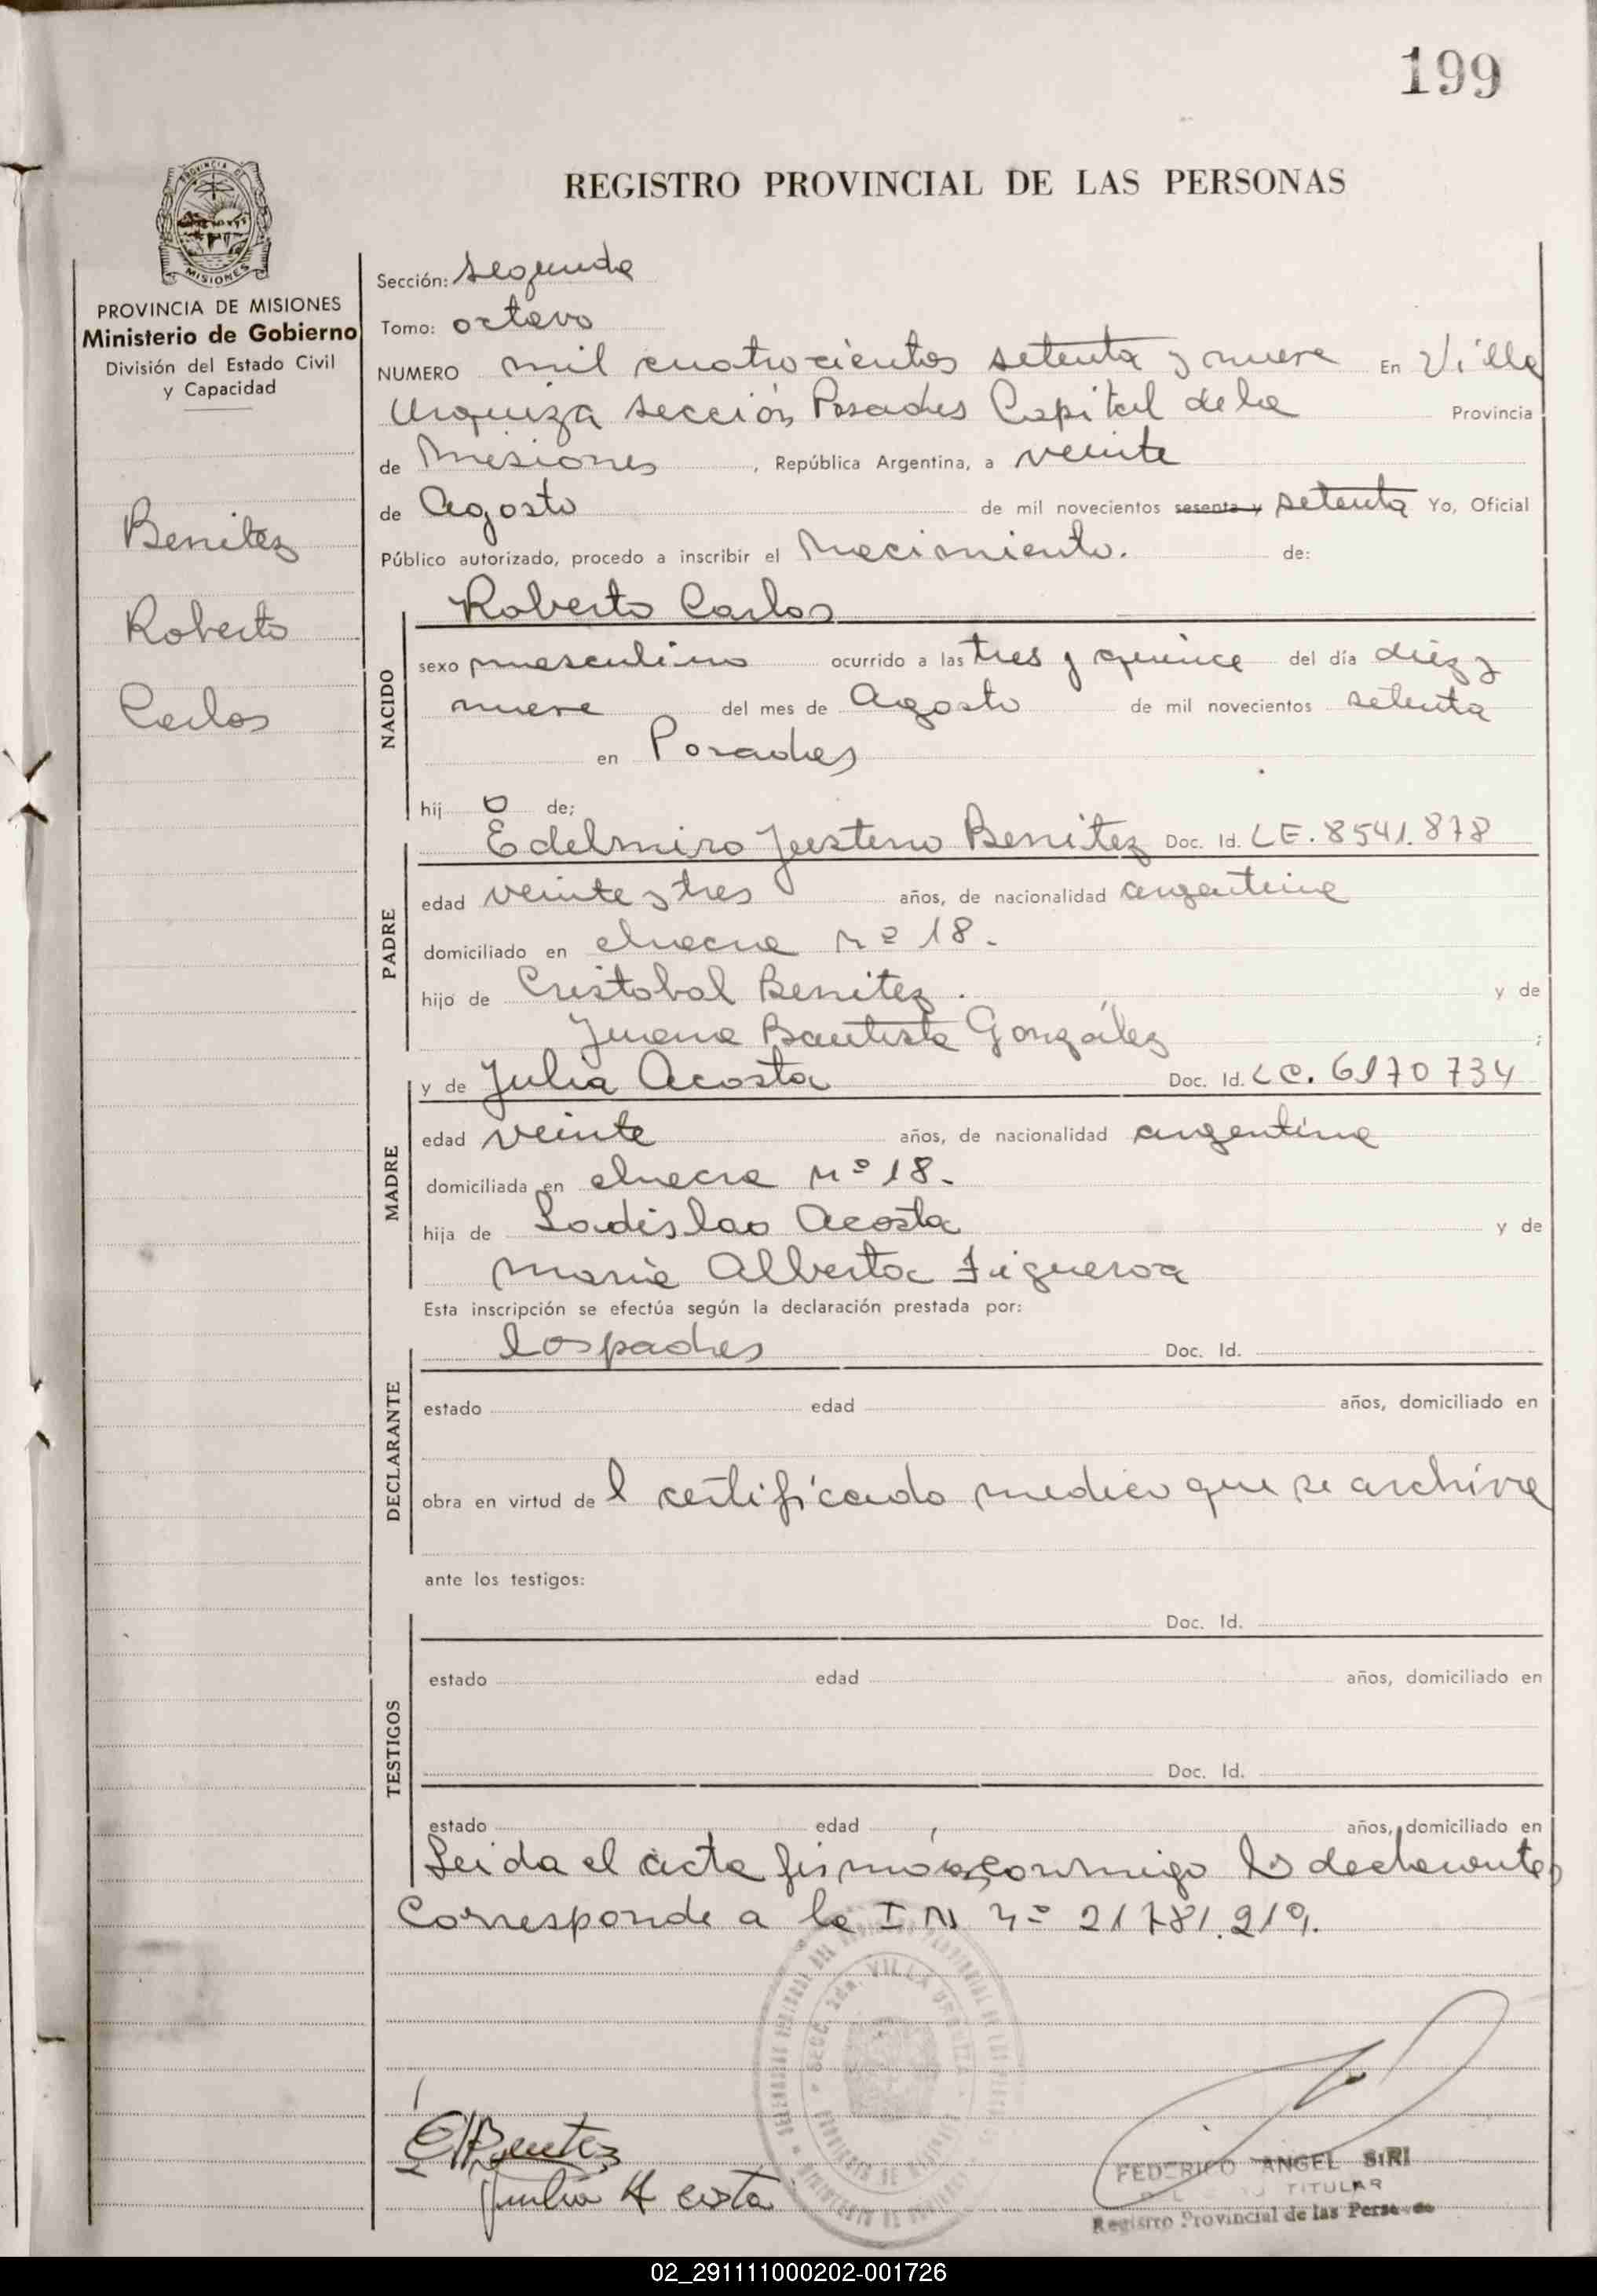 199
REGISTRO PROVINCIAL DE LAS PERSONAS
PROVINCIA DE MISIONES
Ministerio de Gobierno
División del Estado Civil
y Capacidad
Benitez
Roberto
Carlos
Sección: segunda
Tomo: octavo
NUMERO mil cuatrocientos setenta y nueve En Villa
Urquiza sección Posadas Capital de la Provincia
de Misiones, República Argentina, a veinte
de Agosto de mil novecientos sesenta y setenta Yo, Oficial
Público autorizado, procedo a inscribir el Nacimiento. de:
Roberto Carlos
NACIDO
sexo masculino ocurrido a las tres y quince del día diez y
nueve del mes de Agosto de mil novecientos setenta
en Posadas
hij o de;
Edelmiro Justino Benitez Doc. Id. LE. 8541.878
PADRE
edad veinte y tres años, de nacionalidad argentina
domiciliado en chacra nº 18.
hijo de Cristobal Benitez. y de
Juana Bautista González ;
y de Julia Acosta Doc. Id. LC. 6170734
MADRE
edad veinte años, de nacionalidad argentina
domiciliada en chacra nº 18.
hija de Ladislao Acosta y de
Maria Alberta Figueroa
Esta inscripción se efectúa según la declaración prestada por:
los padres Doc. Id.
DECLARANTE
estado edad años, domiciliado en
obra en virtud de l certificado medico que se archiva
ante los testigos:
Doc. Id.
TESTIGOS
estado edad años, domiciliado en
Doc. Id.
estado edad años, domiciliado en
Leida el acta firman conmigo los declarantes
Corresponde a la I N nº 21781.219.
E Benitez
Julia Acosta
FEDERICO ANGEL SIRI
TITULAR
Registro Provincial de las Personas
02_291111000202-001726